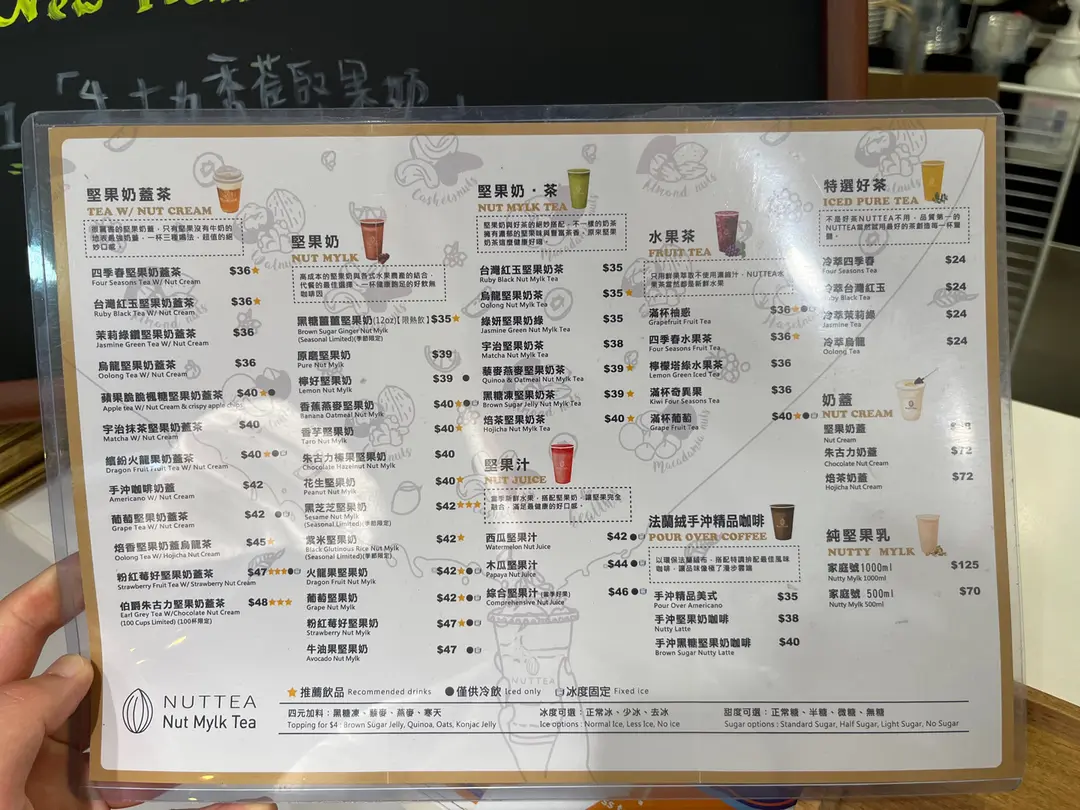 堅果奶蓋茶
TEA W/ NUT CREAM
四季春堅果奶蓋茶 $36
Four Seasons Tea W/ Nut Cream
台灣紅玉堅果奶蓋茶 $36
Ruby Black Tea W/ Nut Cream
茉莉綠鑽堅果奶蓋茶 $36
Jasmine Green Tea W/ Nut Cream
烏龍堅果奶蓋茶 $36
Oolong Tea W/ Nut Cream
蘋果脆脆楓糖堅果奶蓋茶 $40
Apple tea W/ Nut Cream & crispy apple chips
宇治抹茶堅果奶蓋茶 $40
Matcha W/ Nut Cream
繽紛火龍果奶蓋茶 $40
Dragon Fruit Fruit Tea W/ Nut Cream
手沖咖啡奶蓋 $42
Americano W/ Nut Cream
葡萄堅果奶蓋茶 $42
Grape Tea W/ Nut Cream
焙香堅果奶蓋烏龍茶 $45
Oolong Tea W/ Hojicha Nut Cream
粉紅莓好堅果奶蓋茶 $47
Strawberry Fruit Tea W/ Strawberry Nut Cream
伯爵朱古力堅果奶蓋茶 $48
Earl Grey Tea W/Chocolate Nut Cream
(100 Cups Limited) (100杯限定)
堅果奶
NUT MYLK
黑糖薑薑堅果奶(12oz)【限熱飲】 $35
Brown Sugar Ginger Nut Mylk
(Seasonal Limited)(季節限定)
原磨堅果奶 $39
Pure Nut Mylk
檸好堅果奶 $39
Lemon Nut Mylk
香蕉燕麥堅果奶 $40
Banana Oatmeal Nut Mylk
香芋堅果奶 $40
Taro Nut Mylk
朱古力榛果堅果奶 $40
Chocolate Hazelnut Nut Mylk
花生堅果奶 $40
Peanut Nut Mylk
黑芝芝堅果奶 $42
Sesame Nut Mylk
(Seasonal Limited)(季節限定)
紫米堅果奶 $42
Black Glutinous Rice Nut Mylk
(Seasonal Limited)(季節限定)
火龍果堅果奶 $42
Dragon Fruit Nut Mylk
葡萄堅果奶 $42
Grape Nut Mylk
粉紅莓好堅果奶 $47
Strawberry Nut Mylk
牛油果堅果奶 $47
Avocado Nut Mylk
堅果奶・茶
NUT MYLK TEA
台灣紅玉堅果奶茶 $35
Ruby Black Nut Mylk Tea
烏龍堅果奶茶 $35
Oolong Nut Mylk Tea
綠妍堅果奶綠 $35
Jasmine Green Nut Mylk Tea
宇治堅果奶茶 $38
Matcha Nut Mylk Tea
藜麥燕麥堅果奶茶 $39
Quinoa & Oatmeal Nut Mylk Tea
黑糖凍堅果奶茶 $39
Brown Sugar Jelly Nut Mylk Tea
焙茶堅果奶茶 $40
Hojicha Nut Mylk Tea
堅果汁
NUT JUICE
西瓜堅果汁 $42
Watermelon Nut Juice
木瓜堅果汁 $44
Papaya Nut Juice
綜合堅果汁(當季好果) $46
Comprehensive Nut Juice
水果茶
FRUIT TEA
滿杯柚惑 $36
Grapefruit Fruit Tea
四季春水果茶 $36
Four Seasons Fruit Tea
檸檬塔綠水果茶 $36
Lemon Green Iced Tea
滿杯奇異果 $36
Kiwi Four Seasons Tea
滿杯葡萄 $40
Grape Fruit Tea
法蘭絨手沖精品咖啡
POUR OVER COFFEE
以環保法蘭絨布，搭配特調拼配最佳風味
咖啡，讓品味像極了漫步雲端
手沖精品美式 $35
Pour Over Americano
手沖堅果奶咖啡 $38
Nutty Latte
手沖黑糖堅果奶咖啡 $40
Brown Sugar Nutty Latte
特選好茶
ICED PURE TEA
不是好茶NUTTEA不用，品質第一的
NUTTEA當然就用最好的茶創造每一杯靈
魂。
冷萃四季春 $24
Four Seasons Tea
冷萃台灣紅玉 $24
Ruby Black Tea
冷萃茉莉綠 $24
Jasmine Tea
冷萃烏龍 $24
Oolong Tea
奶蓋
NUT CREAM
堅果奶蓋
Nut Cream
朱古力奶蓋 $72
Chocolate Nut Cream
焙茶奶蓋 $72
Hojicha Nut Cream
純堅果乳
NUTTY MYLK
家庭號1000ml $125
Nutty Mylk 1000ml
家庭號 500ml $70
Nutty Mylk 500ml
NUTTEA
Nut Mylk Tea
推薦飲品 Recommended drinks 僅供冷飲 Iced only 冰度固定 Fixed ice
四元加料：黑糖凍、藜麥、燕麥、寒天 冰度可選：正常冰、少冰、去冰 甜度可選：正常糖、半糖、微糖、無糖
Topping for $4 : Brown Sugar Jelly, Quinoa, Oats, Konjac Jelly Ice options : Normal Ice, Less Ice, No ice Sugar options : Standard Sugar, Half Sugar, Light Sugar, No Sugar